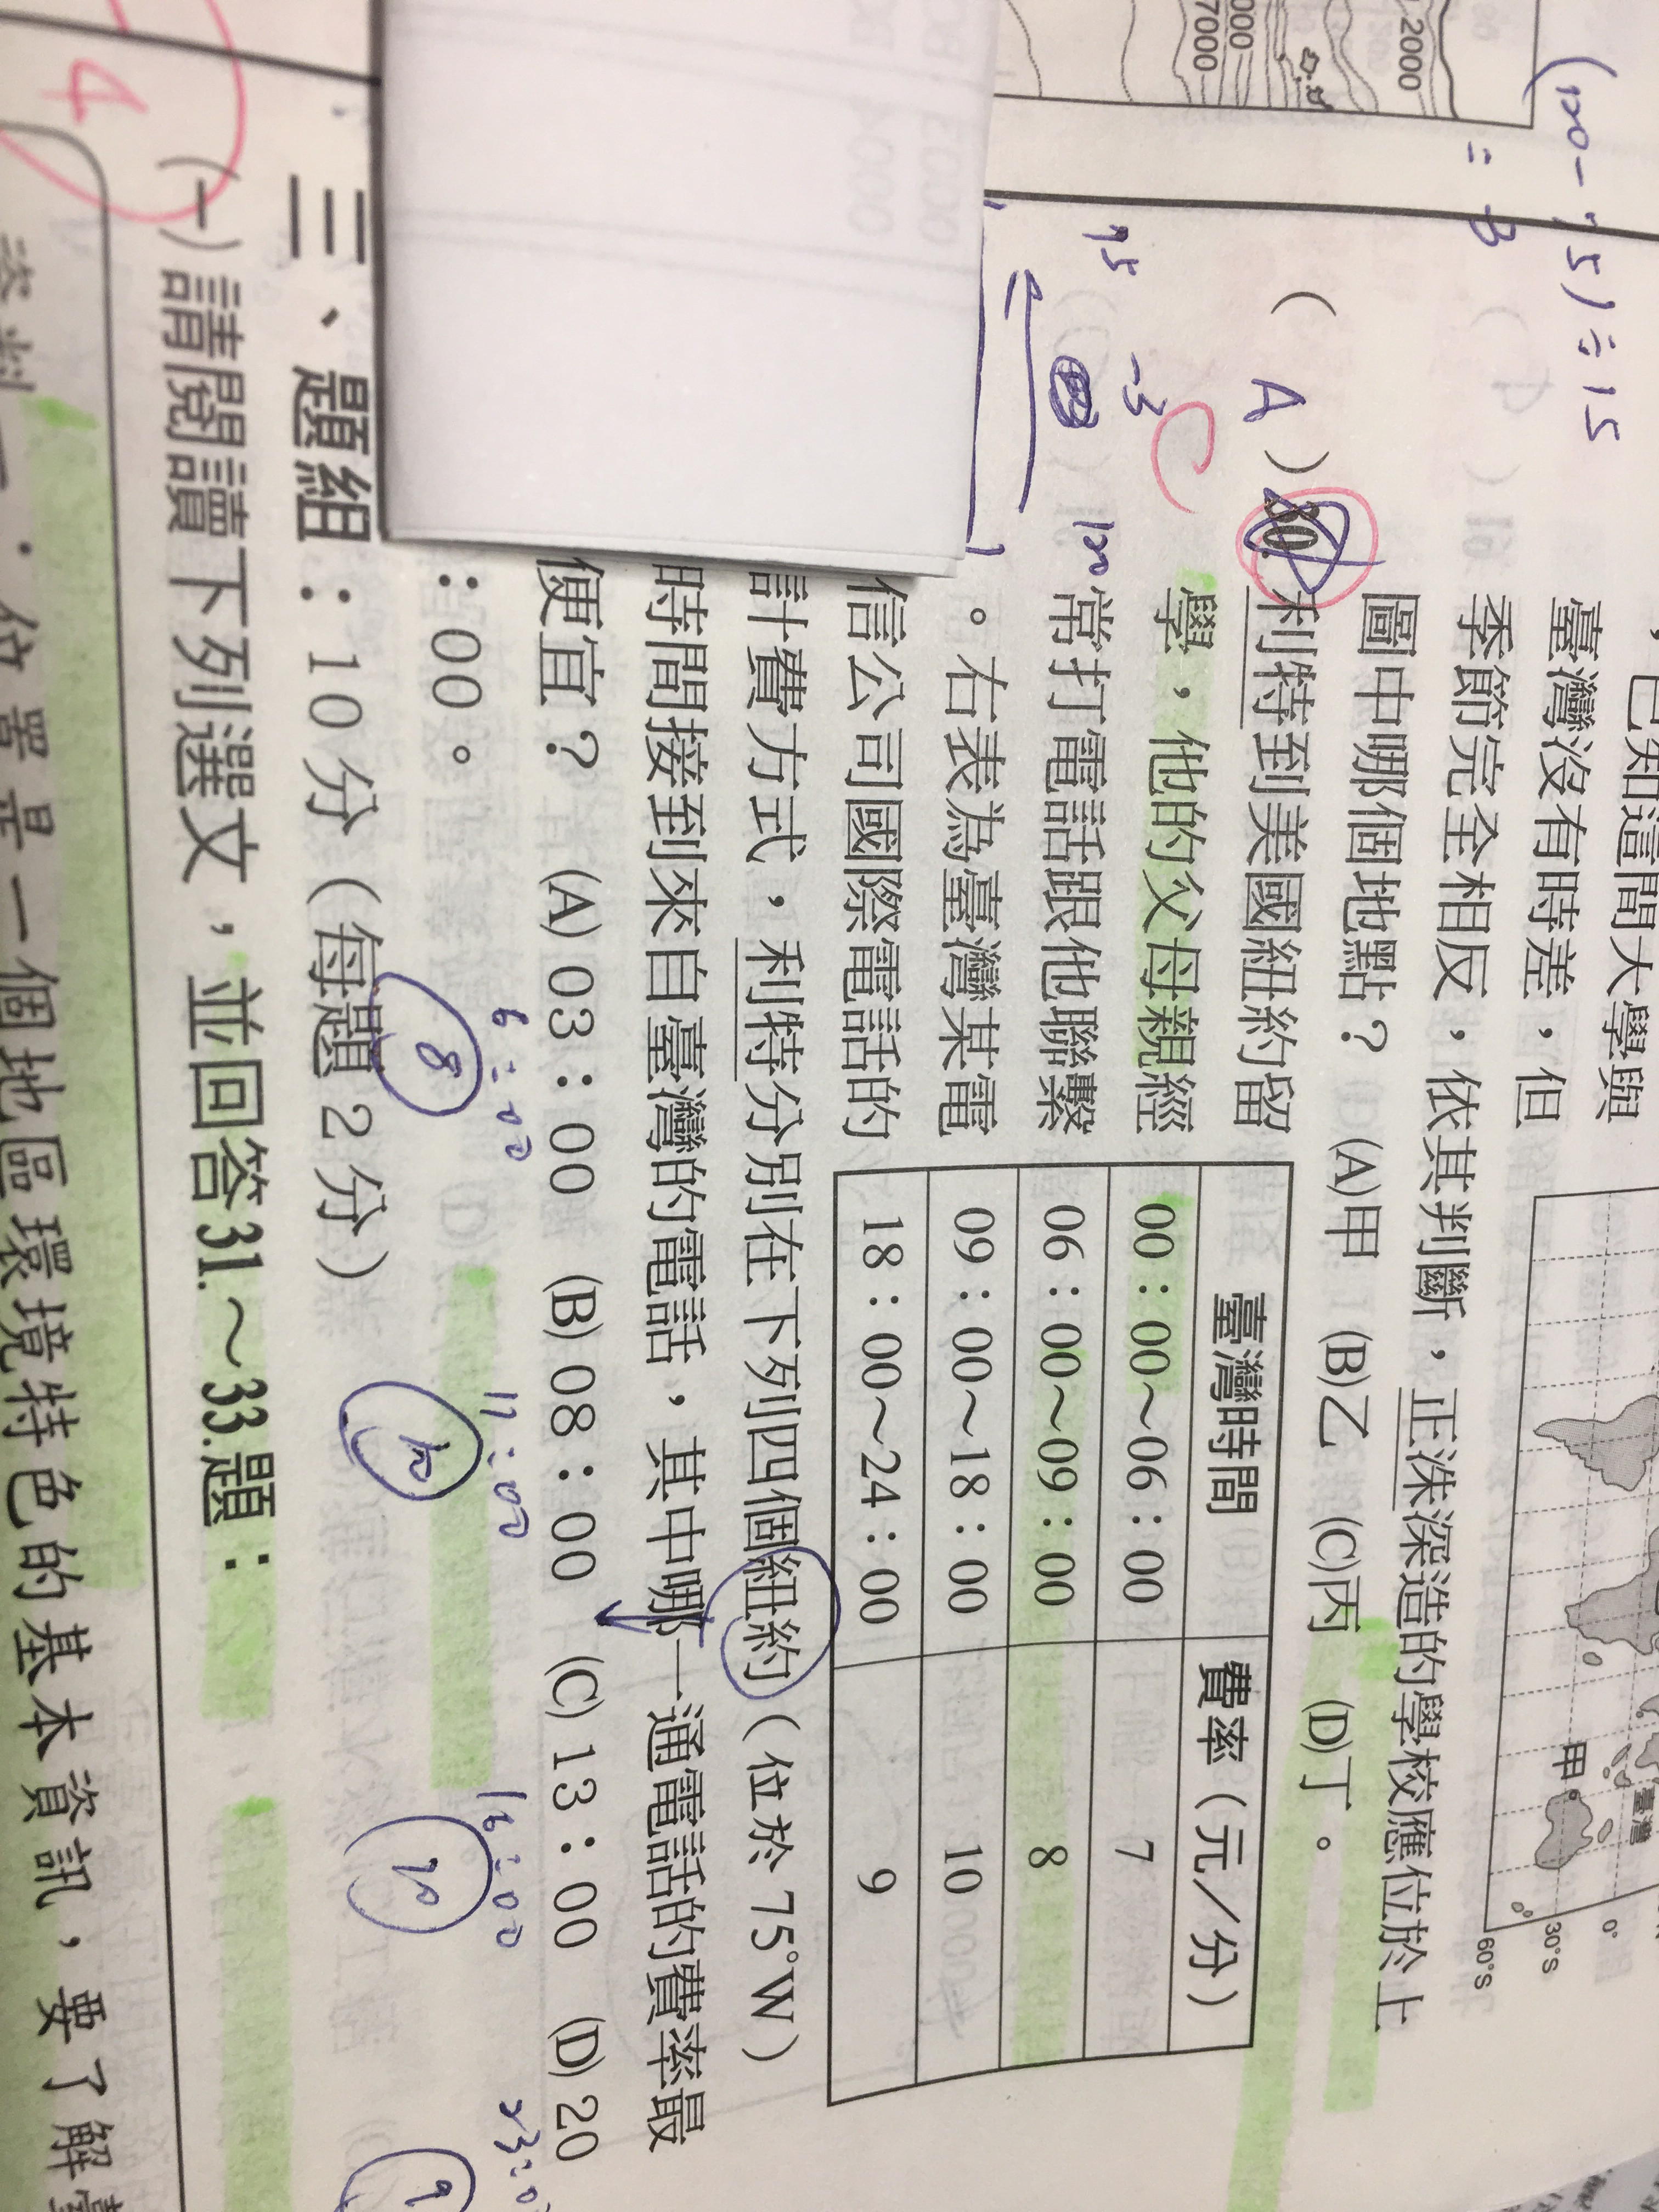 (120-75)÷15
=3
2000
7000
，已知這間大學與
臺灣沒有時差，但
季節完全相反，依其判斷，正洙深造的學校應位於上
圖中哪個地點？ (A)甲 (B)乙 (C)丙 (D)丁。
甲
臺灣
0°
30°S
60°S
( A )30.利特到美國紐約留
學，他的父母親經
常打電話跟他聯繫
。右表為臺灣某電
信公司國際電話的
計費方式，利特分別在下列四個紐約（位於 75°W）
時間接到來自臺灣的電話，其中哪一通電話的費率最
便宜？ (A) 03：00 (B) 08：00 (C) 13：00 (D) 20
：00。
臺灣時間 費率（元／分）
00：00～06：00 7
06：00～09：00 8
09：00～18：00 10
18：00～24：00 9
C
-3
75
120
6:00
11:00
16:00
8
10
9
三、題組：10 分（每題 2 分）
(一)請閱讀下列選文，並回答31.～33.題：
-4
位置是一個地區環境特色的基本資訊，要了解